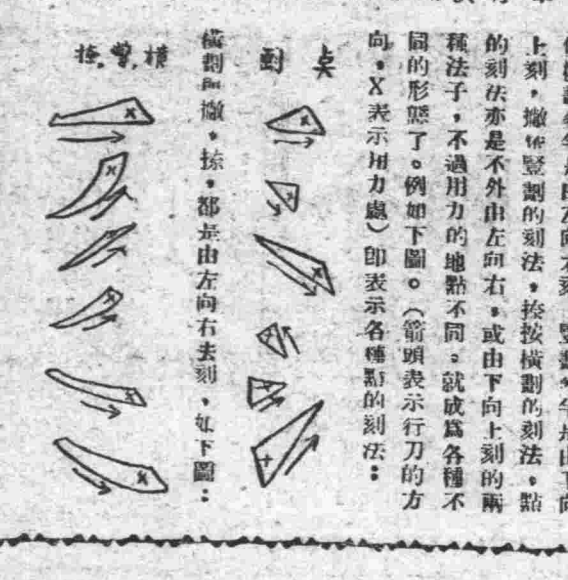 上刻，撇作豎劃的刻法，捺按橫劃的刻法，點
的刻法亦是不外由左向右，或由下向上刻的兩
種法子，不過用力的地點不同。就成爲各種不
同的形態了。例如下圖。（箭頭表示行刀的方
向，X表示用力處）即表示各種點的刻法：
点
橫劃與撇，捺，都是由左向右去刻，如下圖：
橫